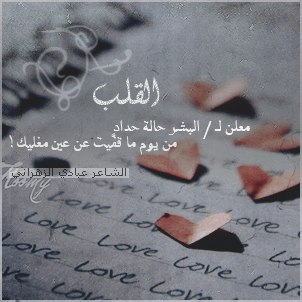 القلب
معلن لـ / البشر حالة حدادٍ
من يوم ما قفيت عن عين مغليك !
الشاعر عبادي الزهراني
Love Love Love
Love Love Love Love
Love Love Love Love